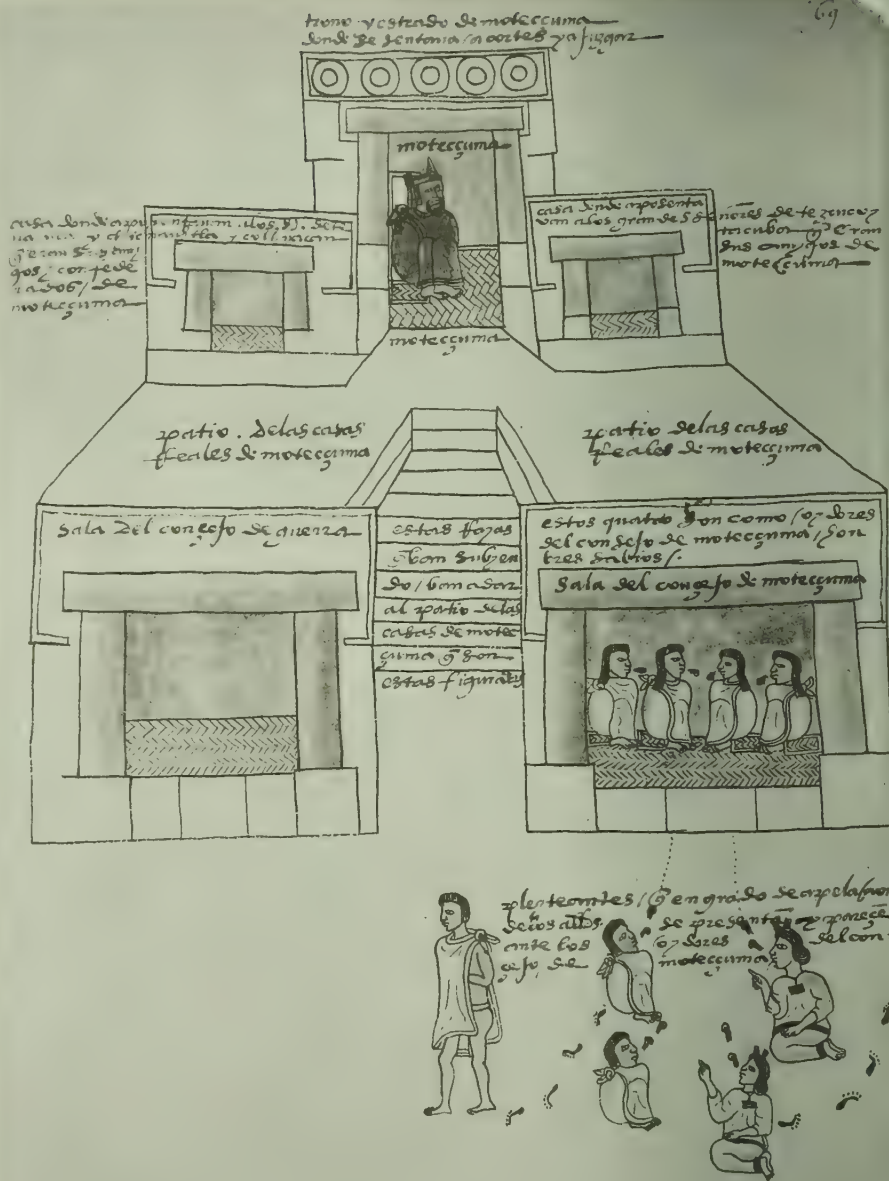 69
trono y estrado de moteccuma
donde se sentaua a cortes y a juzgar
moteccuma
casa donde los s.s. de te
na y colhuacan
q̄ eran sus amy
gos / confede
rados / de
moteccuma
casa donde aposenta
van a los grandes señores de tezcuco y
tacuba q̄ eran
sus amygos de
moteccuma
moteccuma
patio . de las casas
rreales de moteccuma
patio de las casas
rreales de moteccuma
sala del consejo de guerra
estas rrayas
q̄ ban subyen
do / ban a dar
al patio de las
casas de motec
cuma q̄ son
estas figuradas
estos quatro son como / oydores
del consejo de moteccuma / hon
bres sabios /.
sala del consejo de moteccuma
pleyteantes / q̄ en grado de apelaçion
de los alldes. se presentan y pareçe
ante los oydores del con
sejo, de moteccuma